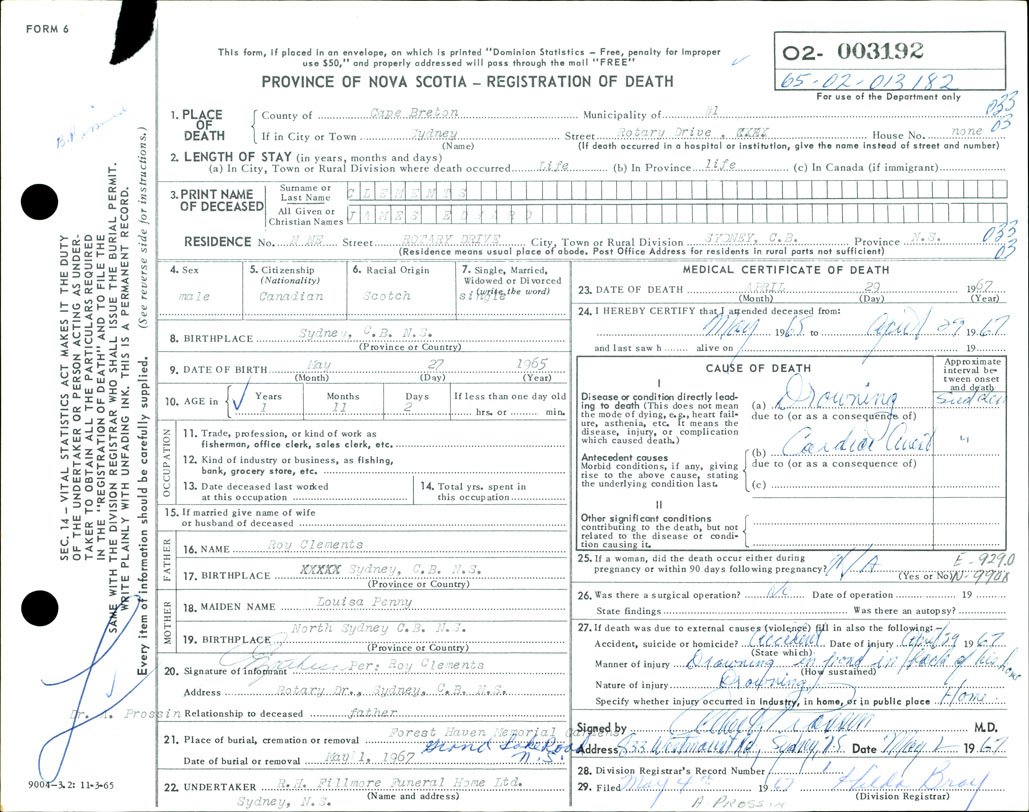 FORM 6
This form, if placed in an envelope, on which is printed "Dominion Statistics – Free, penalty for improper
use $50," and properly addressed will pass through the mail "FREE"
PROVINCE OF NOVA SCOTIA – REGISTRATION OF DEATH
02- 003192
65-02-013182
For use of the Department only
1. PLACE OF DEATH
County of Cape Breton Municipality of #1 033
If in City or Town Sydney Street Rotary Drive, House No. none 03
(Name) (If death occurred in a hospital or institution, give the name instead of street and number)
2. LENGTH OF STAY (in years, months and days)
(a) In City, Town or Rural Division where death occurred Life (b) In Province life (c) In Canada (if immigrant)
3. PRINT NAME OF DECEASED
Surname or Last Name CLEMENTS
All Given or Christian Names JAMES EDWARD
RESIDENCE No. Street ROTARY DRIVE City, Town or Rural Division SYDNEY, C.B. Province N.S. 033
(Residence means usual place of abode. Post Office Address for residents in rural parts not sufficient) 03
4. Sex male
5. Citizenship (Nationality) Canadian
6. Racial Origin Scotch
7. Single, Married, Widowed or Divorced (write the word) single
8. BIRTHPLACE Sydney, C.B. N.S.
(Province or Country)
9. DATE OF BIRTH May 27 1965
(Month) (Day) (Year)
10. AGE in Years 1 Months 11 Days 2 If less than one day old hrs. or min.
OCCUPATION
11. Trade, profession, or kind of work as
fisherman, office clerk, sales clerk, etc.
12. Kind of industry or business, as fishing,
bank, grocery store, etc.
13. Date deceased last worked
at this occupation
14. Total yrs. spent in
this occupation
15. If married give name of wife
or husband of deceased
FATHER
16. NAME Roy Clements
17. BIRTHPLACE XXXXX Sydney, C.B. N.S.
(Province or Country)
MOTHER
18. MAIDEN NAME Louisa Penny
19. BIRTHPLACE North Sydney C.B. N.S.
(Province or Country)
20. Signature of informant Per: Roy Clements
Address Rotary Dr., Sydney, C.B. N.S.
Dr. A. Prossin Relationship to deceased father
21. Place of burial, cremation or removal Forest Haven Memorial
Grand Lake Road
Date of burial or removal May 1, 1967 N.S.
22. UNDERTAKER R.H. Fillmore Funeral Home Ltd.
Sydney, N.S. (Name and address)
MEDICAL CERTIFICATE OF DEATH
23. DATE OF DEATH APRIL 29 1967
(Month) (Day) (Year)
24. I HEREBY CERTIFY that I attended deceased from:
May 1965 to April 29 1967
and last saw h alive on 19
CAUSE OF DEATH
Approximate interval between onset and death
I
Disease or condition directly leading to death (This does not mean the mode of dying, e.g., heart failure, asthenia, etc. It means the disease, injury, or complication which caused death.)
(a) Drowning Sudden
due to (or as a consequence of)
(b) Cardiac Arrest "
due to (or as a consequence of)
(c)
Antecedent causes
Morbid conditions, if any, giving rise to the above cause, stating the underlying condition last.
II
Other significant conditions
contributing to the death, but not related to the disease or condition causing it.
25. If a woman, did the death occur either during
pregnancy or within 90 days following pregnancy? N/A (Yes or No)
E-929.0
N-990X
26. Was there a surgical operation? No Date of operation 19
State findings Was there an autopsy?
27. If death was due to external causes (violence) fill in also the following:–
Accident, suicide or homicide? Accident Date of injury April 29 1967
(State which)
Manner of injury Drowning in pond in back of his home
(How sustained)
Nature of injury Drowning
Specify whether injury occurred in industry, in home, or in public place Home
Signed by M.D.
Address Westmount Rd., Sydney, N.S. Date May 2 1967
28. Division Registrar's Record Number
29. Filed May 4th 1967 Hilda Bray
(Division Registrar)
A PROSSIN
SEC. 14 – VITAL STATISTICS ACT MAKES IT THE DUTY
OF THE UNDERTAKER OR PERSON ACTING AS UNDER-
TAKER TO OBTAIN ALL THE PARTICULARS REQUIRED
IN THE "REGISTRATION OF DEATH" AND TO FILE THE
SAME WITH THE DIVISION REGISTRAR WHO SHALL ISSUE THE BURIAL PERMIT.
WRITE PLAINLY WITH UNFADING INK. THIS IS A PERMANENT RECORD.
Every item of information should be carefully supplied. (See reverse side for instructions.)
9004-3.2: 11-3-65